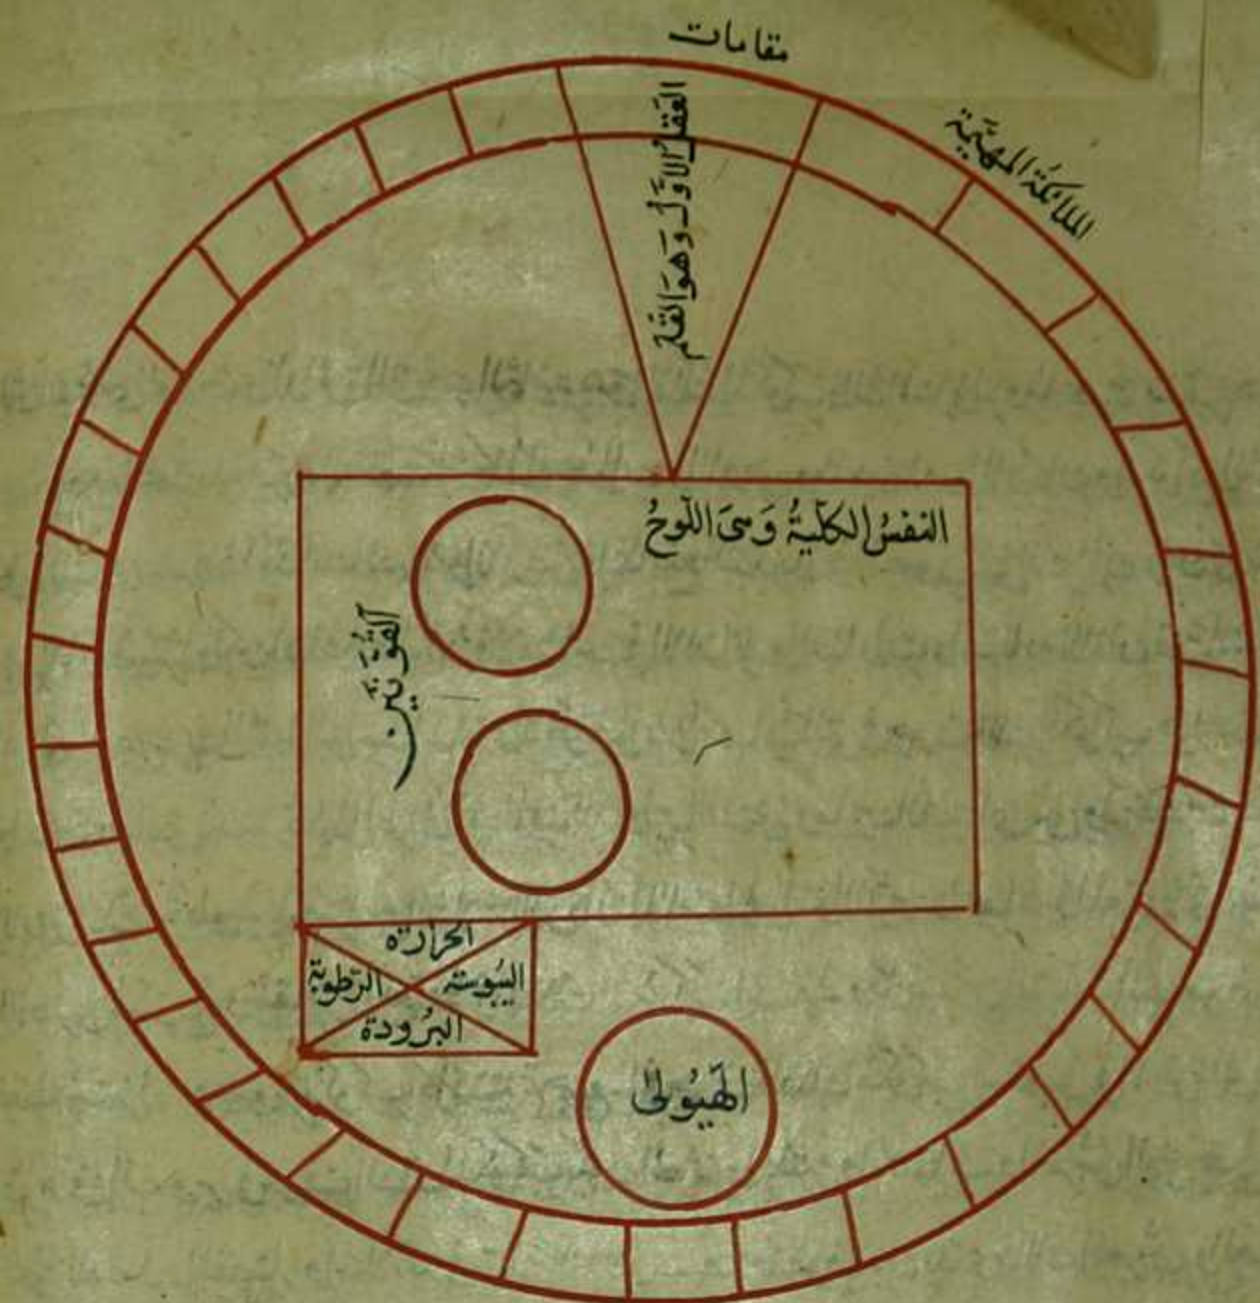 مقامات
الملائكة المهيمة
العقل الاول وهو القلم
النفس الكلية وهى اللوح
القوتين
الحرارة
اليبوسة
الرطوبة
البرودة
الهيولى